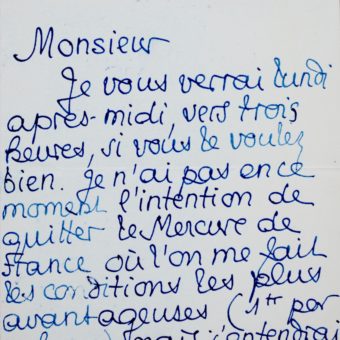 Monsieur
Je vous verrai lundi
après-midi, vers trois
heures, si vous le voulez
bien. Je n'ai pas en ce
moment l'intention de
quitter le Mercure de
France où l'on me fait
les conditions les plus
avantageuses (1 par
mais j'entendrai